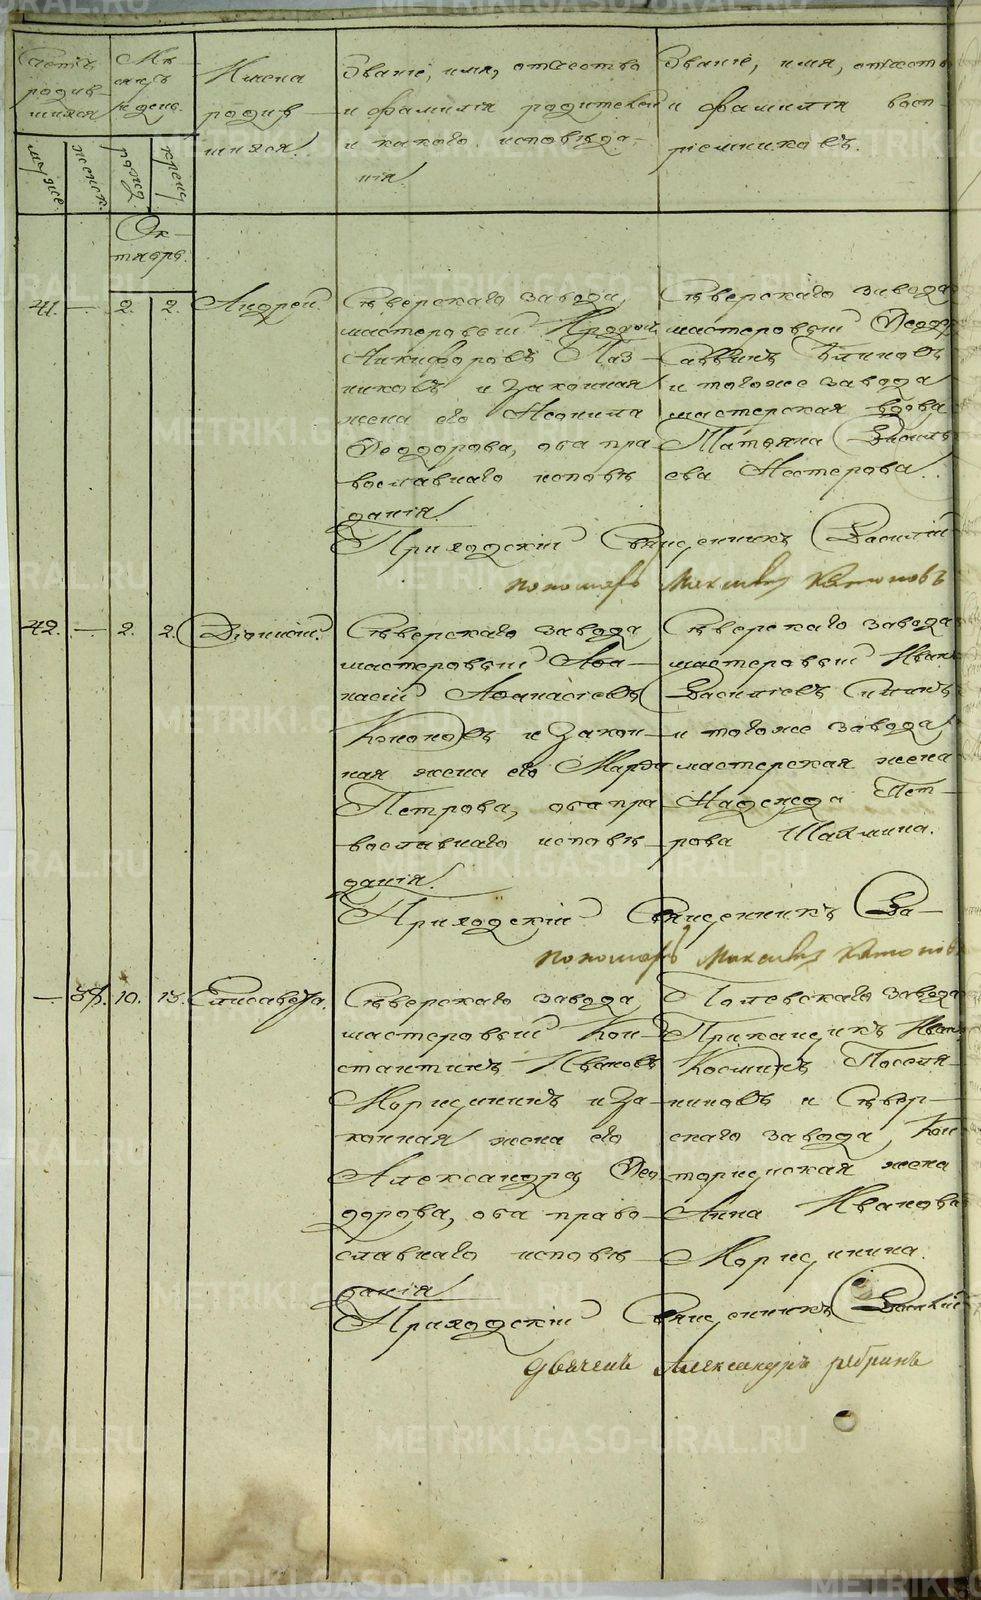 Счетъ родив-шихся
муже.
женск.
Мѣ-сяцъ и день.
рожд.
крещ.
Имена родив-шихся.
Званіе, имя, отчество
и фамилія родителей
и какого исповѣда-
нія.
Званіе, имя, отчество
и фамилія восп-
ріемниковъ.
Ок-
тябрь.
41. — 2. 2. Андрей
Сѣверскаго завода,
мастеровый
Никифоровъ Паз-
никовъ и законная
жена его Неонила
Ѳеодорова, оба пра-
вославнаго исповѣ-
данія.
Сѣверскаго завода
мастеровый Ѳеодоръ
Блиновъ
и тогоже завода
мастерская вдова
Татьяна Василь-
ева Нестерова.
Приходскій Священникъ Василій
пономарь Михаилъ
42. — 2. 2. Діонисій.
Сѣверскаго завода,
мастеровый Аѳа-
насій Аѳанасіевъ
Кононовъ и закон-
ная жена его Марѳа
Петрова, оба пра-
вославнаго исповѣ-
данія.
Сѣверскаго завода
мастеровый Иванъ
Василіевъ
и тогоже завода,
мастерская жена
Надежда Пет-
рова
Приходскій Священникъ Ва-
пономарь Михаилъ
— 10. 15. Елисавета.
Сѣверскаго завода,
мастеровый Кон-
стантинъ Ивановъ
Морщининъ и за-
конная жена его
Александра Ѳео-
дорова, оба право-
славнаго исповѣ-
данія
Полевскаго завода
Прикащикъ Иван
Косминъ Поселя-
ниновъ и Сѣвер-
скаго завода, Кон-
торщиская жена
Анна Иванова
Морщинина.
Приходскій Священникъ Василій
Александръ
METRIKI.GASO-URAL.RU